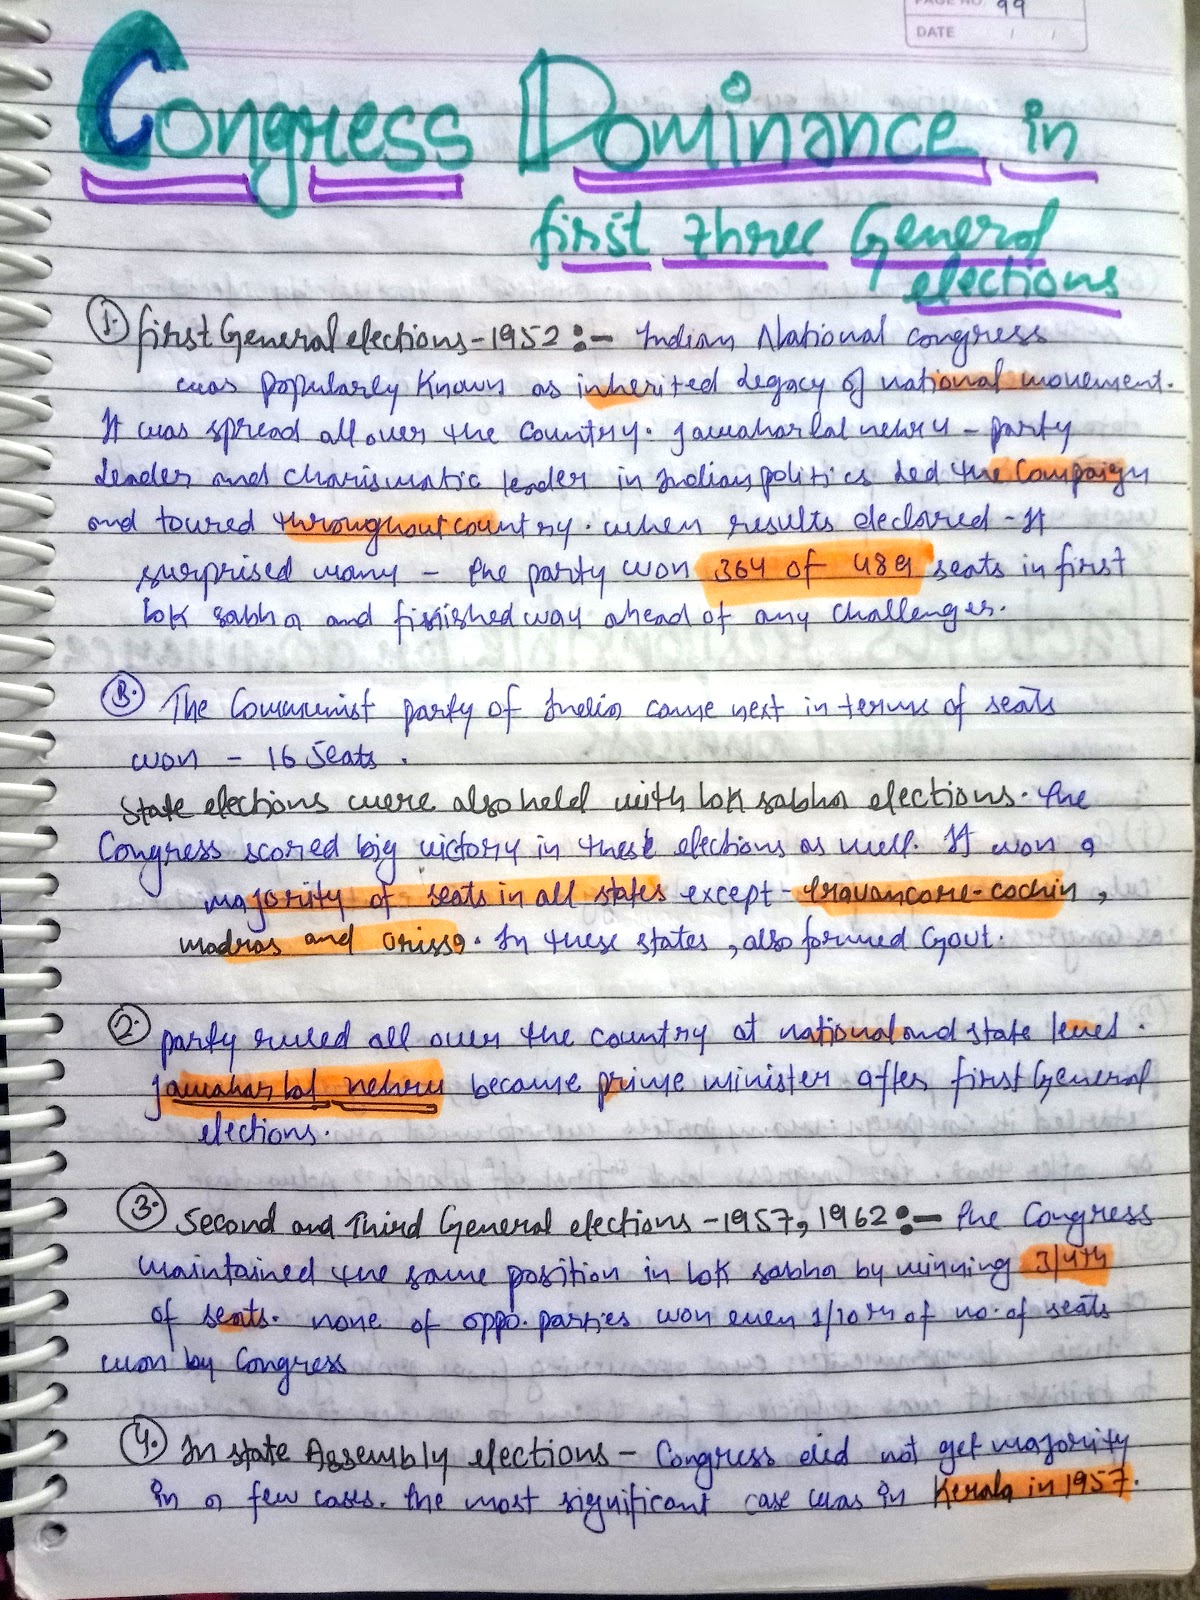 PAGE NO. 99
DATE / /
Congress Dominance in
first three General
elections
1. first General elections-1952:- Indian National congress
was popularly known as inherited legacy of national movement.
It was spread all over the country. Jawaharlal nehru - party
leader and charismatic leader in Indian politics led the Campaign
and toured throughout country. when results declared - It
surprised many - the party won 364 of 489 seats in first
lok sabha and finished way ahead of any challenges.
B. The Communist party of India came next in terms of seats
won - 16 seats.
State elections were also held with lok sabha elections. the
Congress scored big victory in these elections as well. It won a
majority of seats in all states except - travancore-cochin,
madras and orissa. In these states, also formed Govt.
2. party ruled all over the country at national and state level.
Jawahar lal nehru became prime minister after first General
elections.
3. Second and Third General elections -1957, 1962:- the Congress
maintained the same position in lok sabha by winning 3/4th
of seats. none of oppo. parties won even 1/10th of no. of seats
won by Congress
4. In state Assembly elections - Congress did not get majority
in a few cases. the most significant case was in Kerala in 1957.